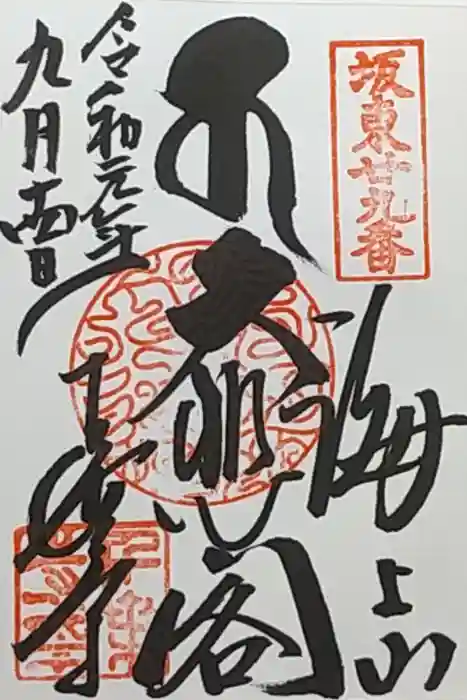 坂東廿九番
海上山
大悲閣
千葉寺
令和元年
九月十四日